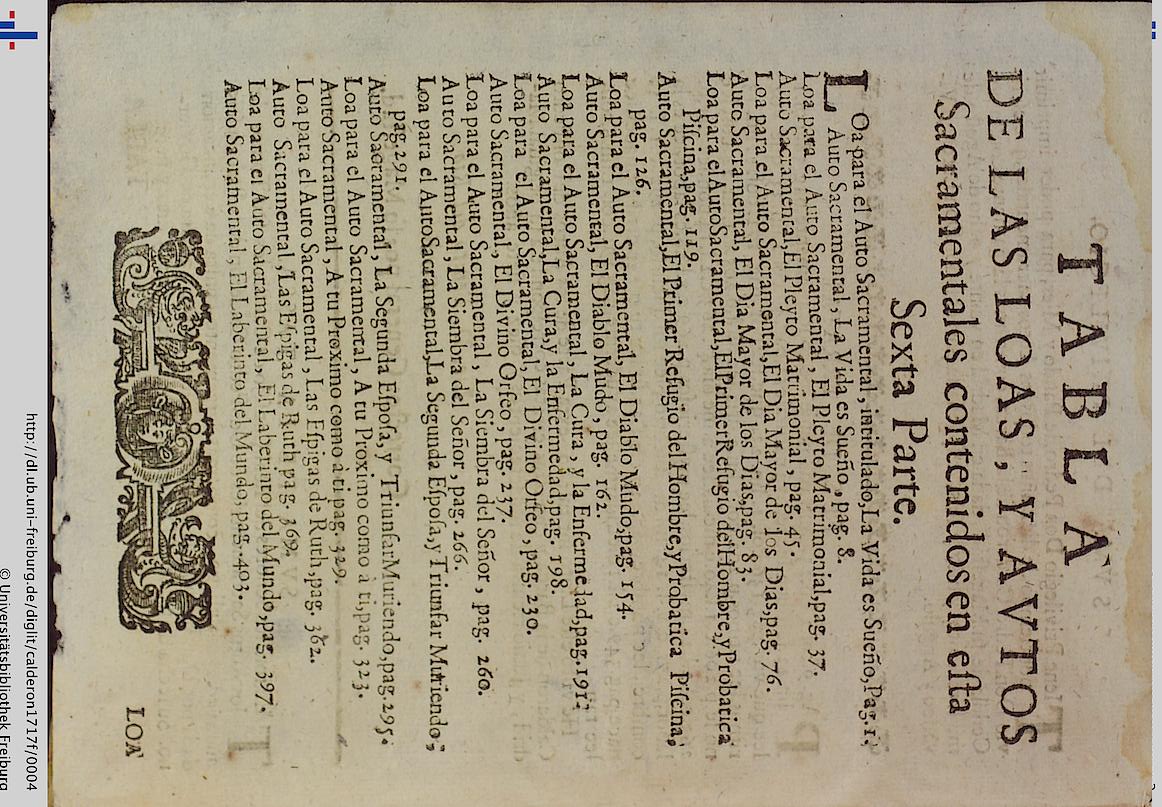 TABLA
DE LAS LOAS, Y AVTOS
Sacramentales contenidos en eſta
Sexta Parte.
LOa para el Auto Sacramental, intitulado, La Vida es Sueño, Pag. 1.
Auto Sacramental, La Vida es Sueño, pag. 8.
Loa para el Auto Sacramental, El Pleyto Matrimonial, pag. 37.
Auto Sacramental, El Pleyto Matrimonial, pag. 45.
Loa para el Auto Sacramental, El Dia Mayor de los Dias, pag. 76.
Auto Sacramental, El Dia Mayor de los Dias, pag. 83.
Loa para el Auto Sacramental, El Primer Refugio del Hombre, y Probatica
Piſcina, pag. 119.
Auto Sacramental, El Primer Refugio del Hombre, y Probatica Piſcina,
pag. 126.
Loa para el Auto Sacramental, El Diablo Mudo, pag. 154.
Auto Sacramental, El Diablo Mudo, pag. 162.
Loa para el Auto Sacramental, La Cura, y la Enfermedad, pag. 191.
Auto Sacramental, La Cura, y la Enfermedad, pag. 198.
Loa para el Auto Sacramental, El Divino Orfeo, pag. 230.
Auto Sacramental, El Divino Orfeo, pag. 237.
Loa para el Auto Sacramental, La Siembra del Señor, pag. 260.
Auto Sacramental, La Siembra del Señor, pag. 266.
Loa para el Auto Sacramental, La Segunda Eſpoſa, y Triunfar Muriendo,
pag. 291.
Auto Sacramental, La Segunda Eſpoſa, y Triunfar Muriendo, pag. 295.
Loa para el Auto Sacramental, A tu Proximo como à ti, pag. 323.
Auto Sacramental, A tu Proximo como à ti, pag. 329.
Loa para el Auto Sacramental, Las Eſpigas de Ruth, pag. 362.
Auto Sacramental, Las Eſpigas de Ruth pag. 369.
Loa para el Auto Sacramental, El Laberinto del Mundo, pag. 397.
Auto Sacramental, El Laberinto del Mundo, pag. 403.
LOA
http://dl.ub.uni-freiburg.de/diglit/calderon1717f/0004
© Universitätsbibliothek Freiburg